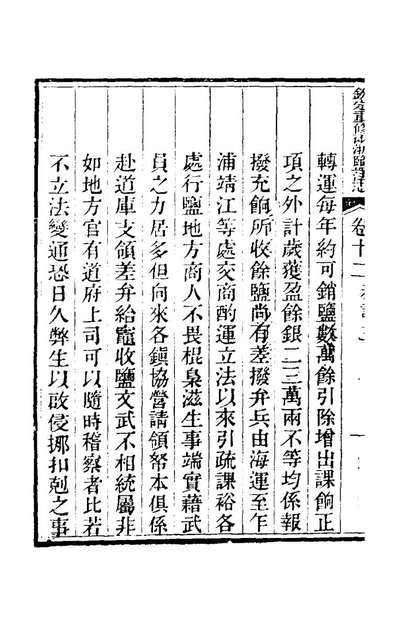 欽定重修兩浙鹽法志
卷十二
轉運每年約可銷鹽數萬餘引除增出課餉正
項之外計歲獲盈餘銀二三萬兩不等均係報
撥充餉所收餘鹽尚有差撥弁兵由海運至乍
浦靖江等處交商酌運立法以來引疏課裕各
處行鹽地方商人不畏棍梟滋生事端實藉武
員之力居多但向來各鎮協營請領帑本俱係
赴道庫支領差弁給竈收鹽文武不相統屬非
如地方官有道府上司可以隨時稽察者比若
不立法變通恐日久弊生以啟侵挪扣剋之事